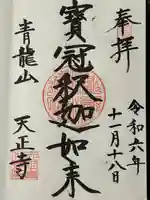 奉拝
令和六年
十一月十八日
寶冠釈迦如来
青龍山
天正寺